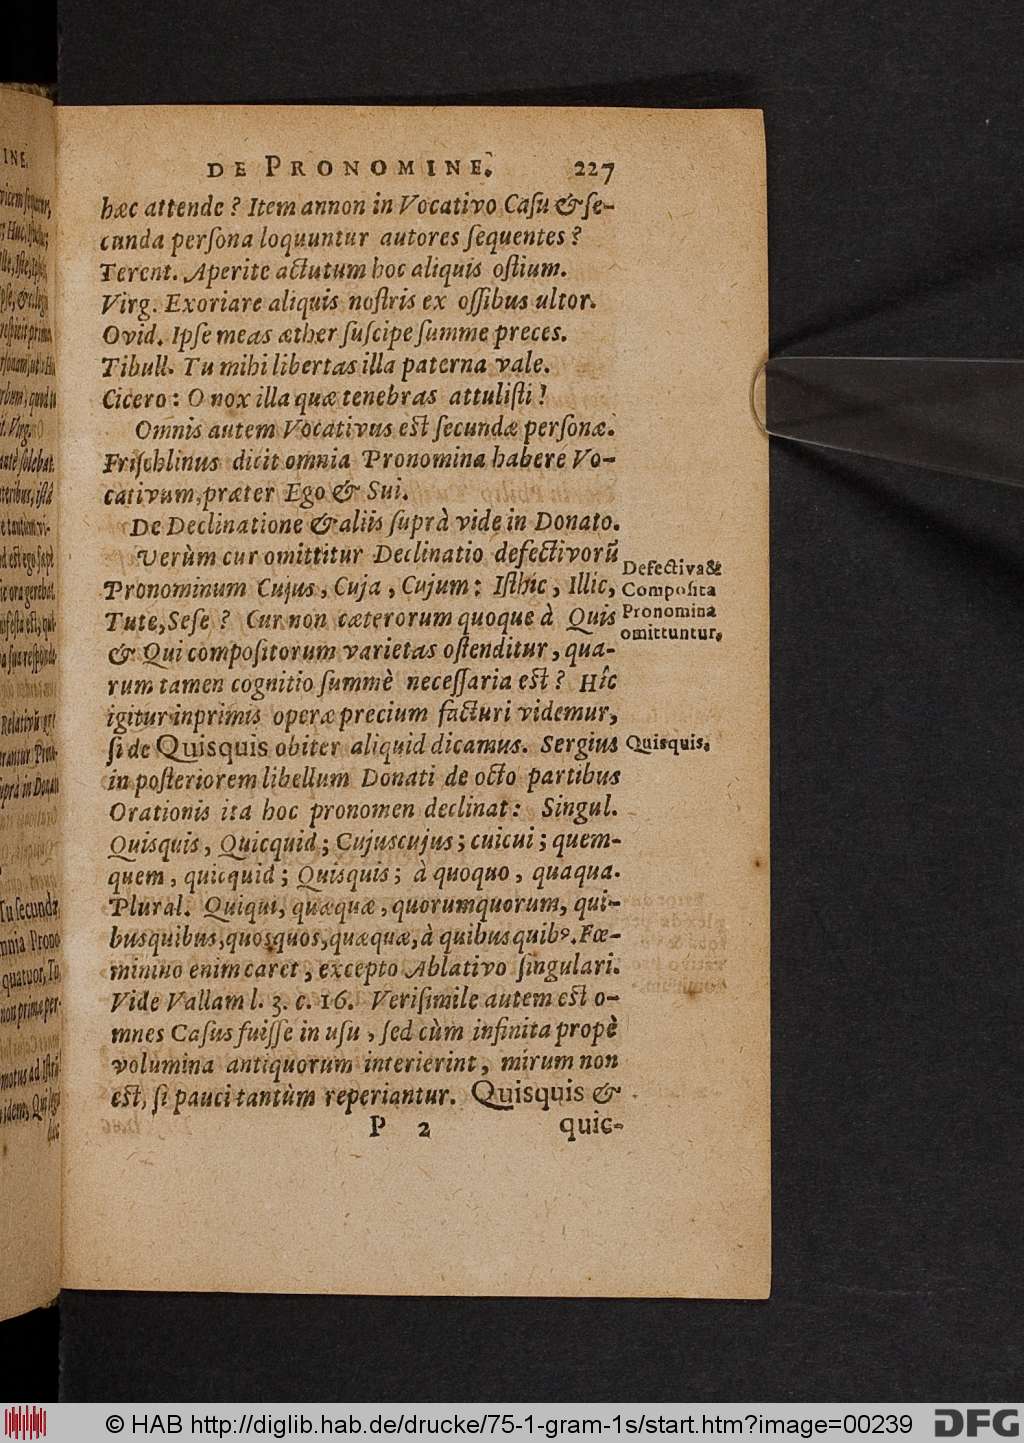 DE PRONOMINE. 227
hæc attende? Item annon in Vocativo Casu & se-
cunda persona loquuntur autores sequentes?
Terent. Aperite actutum hoc aliquis ostium.
Virg. Exoriare aliquis nostris ex ossibus ultor.
Ovid. Ipse meas æther suscipe summe preces.
Tibull. Tu mihi libertas illa paterna vale.
Cicero: O nox illa quæ tenebras attulisti!
Omnis autem Vocativus est secundæ personæ.
Frischlinus dicit omnia Pronomina habere Vo-
cativum, præter Ego & Sui.
De Declinatione & aliis suprà vide in Donato.
Verùm cur omittitur Declinatio defectivorũ
Pronominum Cujus, Cuja, Cujum: Isthic, Illic,
Tute, Sese? Cur non cæterorum quoque à Quis
& Qui compositorum varietas ostenditur, qua-
rum tamen cognitio summè necessaria est? Hîc
igitur inprimis operæ precium facturi videmur,
si de Quisquis obiter aliquid dicamus. Sergius
in posteriorem libellum Donati de octo partibus
Orationis ita hoc pronomen declinat: Singul.
Quisquis, Quicquid; Cujuscujus; cuicui; quem-
quem, quicquid; Quisquis; à quoquo, quaqua.
Plural. Quiqui, quæquæ, quorumquorum, qui-
busquibus, quosquos, quæquæ, à quibusquibꝰ. Fœ-
minino enim caret, excepto Ablativo singulari.
Vide Vallam l. 3. c. 16. Verisimile autem est o-
mnes Casus fuisse in usu, sed cùm infinita propè
volumina antiquorum interierint, mirum non
est, si pauci tantùm reperiantur. Quisquis &
P 2 quic-
Defectiva &
Composita
Pronomina
omittuntur.
Quisquis.
INE.
© HAB http://diglib.hab.de/drucke/75-1-gram-1s/start.htm?image=00239
DFG